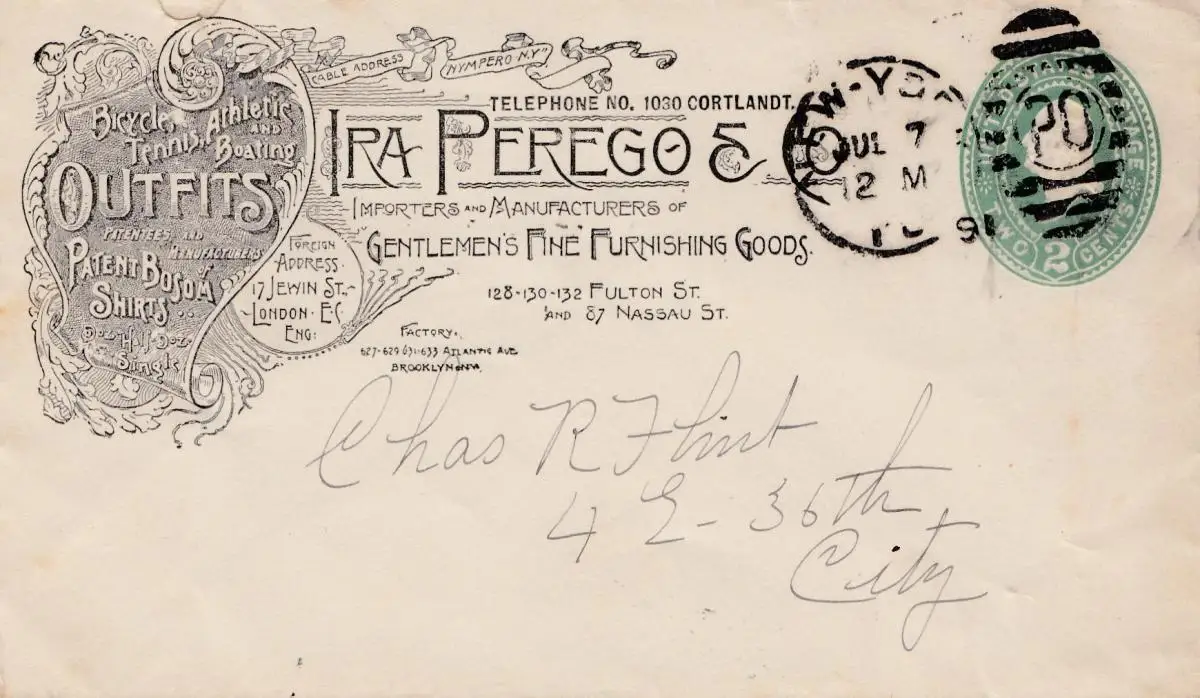 CABLE ADDRESS
"NYMPERO N.Y."
TELEPHONE NO. 1030 CORTLANDT.
IRA PEREGO & CO
IMPORTERS AND MANUFACTURERS OF
GENTLEMEN'S FINE FURNISHING GOODS.
128-130-132 FULTON ST.
AND 87 NASSAU ST.
Bicycle, Athletic
Tennis, AND Boating
OUTFITS
PATENTEES AND
MANUFACTURERS
of
PATENT BOSOM
SHIRTS
Doz-Half-Doz-
Single
FOREIGN
ADDRESS.
17 JEWIN ST.,
LONDON. E.C.
ENG:
FACTORY.
627-629 631-633 ATLANTIC AVE
BROOKLYN N.Y.
NEW-YORK
JUL 7
12 M
91
PO
UNITED STATES POSTAGE
TWO 2 CENTS
Chas R Flint
4 E- 36th
City